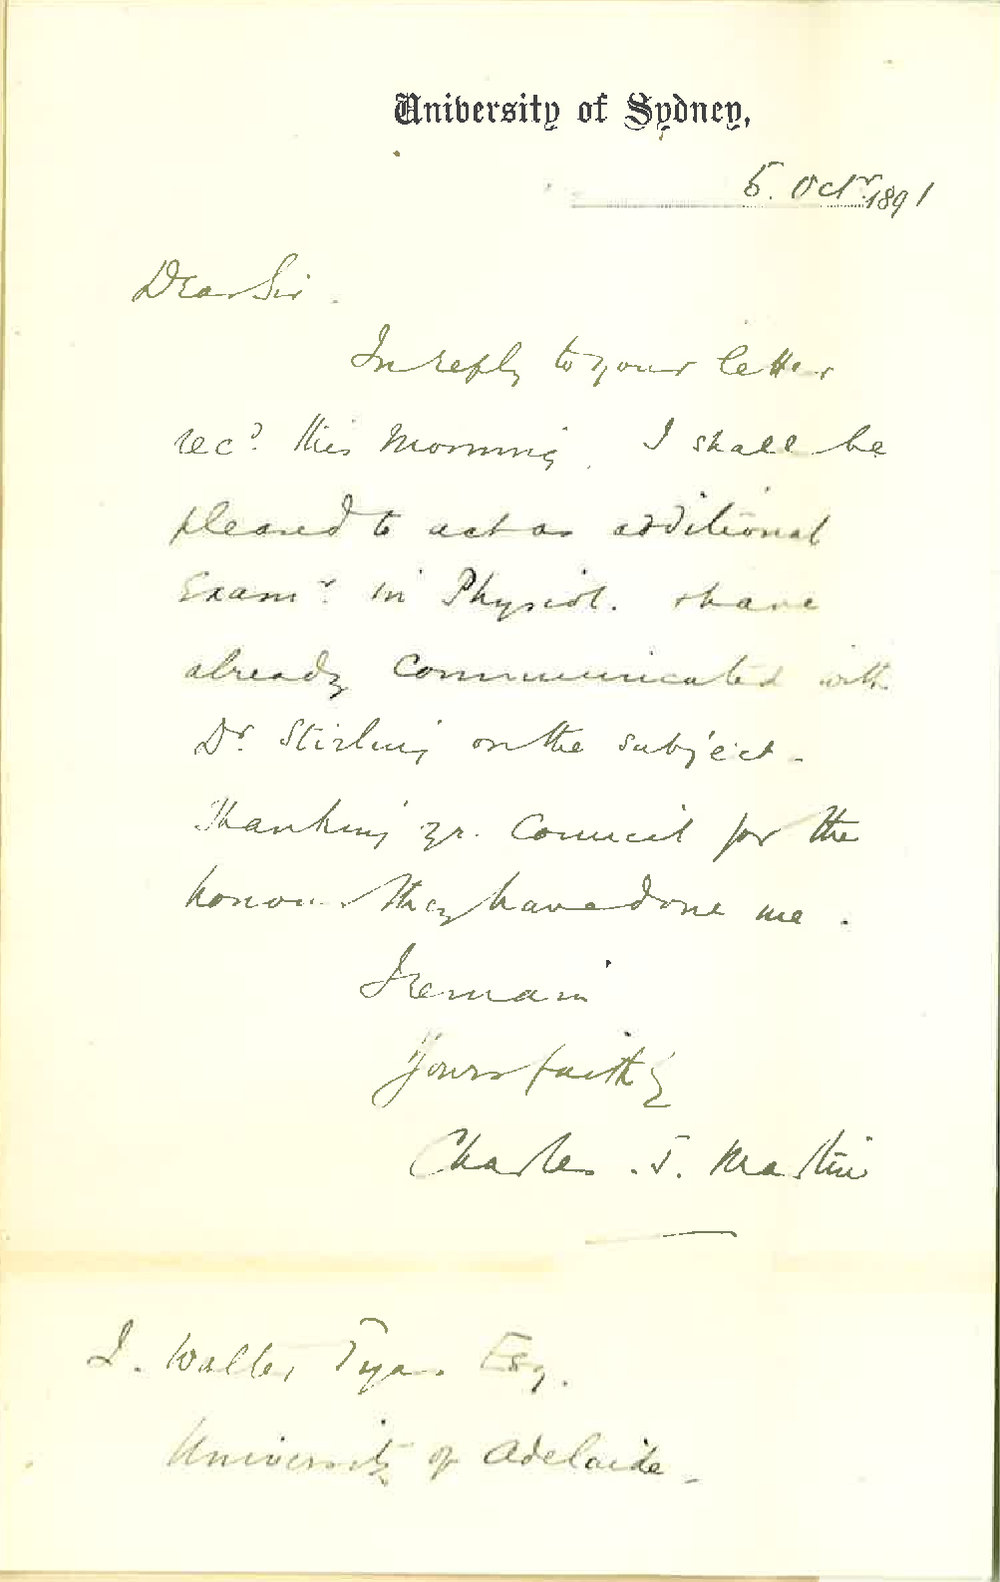 University of Sydney,
5. Octr. 1891
Dear Sir.
In reply to your letter
recd. this morning. I shall be
pleased to act as additional
Examr. in Physiol. & have
already communicated with
Dr. Stirling on the subject -
Thanking yr. Council for the
honour they have done me.
I remain
Yours faithly
Charles . J. Martin
J. Walter Tyas Esq.
University of Adelaide -